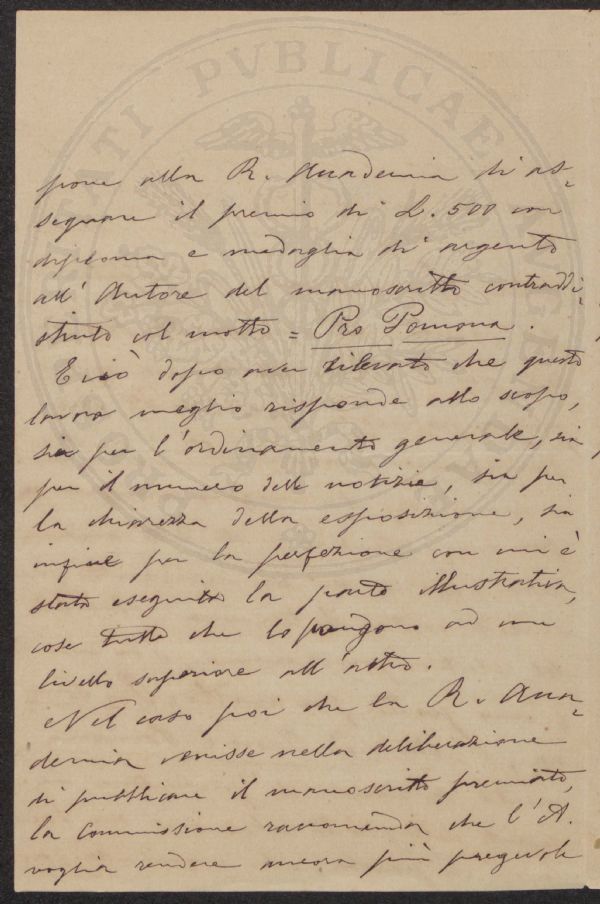 TI PVBLICAE
pone alla R. Accademia di as-
segnare il premio di L. 500 con
diploma e medaglia di argento
all'Autore del manoscritto contraddi-
stinto col motto = Pro Pomona.
E ciò dopo aver rilevato che questo
lavoro meglio risponde allo scopo,
sia per l'ordinamento generale, sia
per il numero delle notizie, sia per
la chiarezza della esposizione, sia
infine per la perfezione con cui è
stata eseguita la parte illustrativa,
cose tutte che lo pongono ad un
livello superiore all'altro.
Nel caso poi che la R. Acca-
demia venisse nella deliberazione
di pubblicare il manoscritto premiato,
la Commissione raccomanda che l'A.
voglia rendere ancora più pregevole